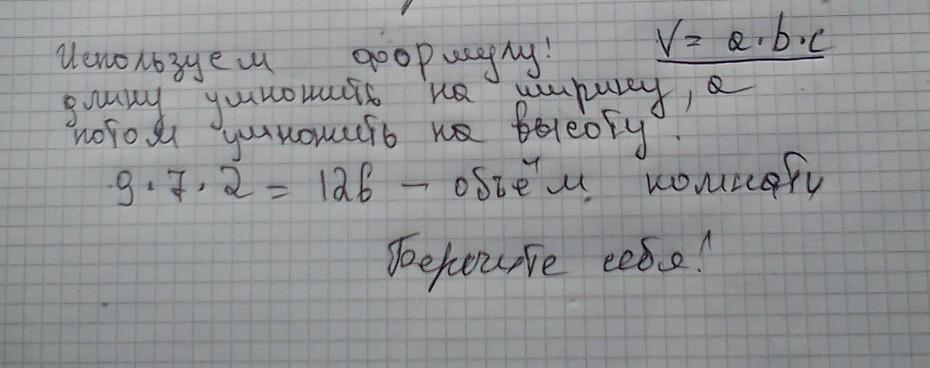 Используем формулу! V = a·b·c
длину умножить на ширину, а
потом умножить на высоту.
9·7·2 = 126 – объём комнаты
Берегите себя!